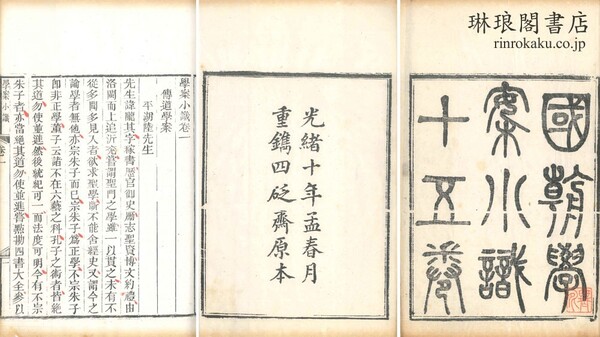 琳琅閣書店
rinrokaku.co.jp
國朝學
案小識
十五卷
光緒十年孟春月
重鐫四砭齋原本
學案小識卷一
傳道學案
平湖陸先生
先生諱隴其字稼書歷官御史厲志聖賢博文約禮由
洛閩而上追沂洙嘗謂聖門之學雖一以貫之未有不
從多聞多見入者欲求聖學斷不能舍經史又謂今之
論學者無他亦宗朱子而已宗朱子爲正學不宗朱子
卽非正學董子云諸不在六藝之科孔子之術者皆絕
其道勿使並進然後統紀可一而法度可明今有不宗
朱子者亦當絕其道勿使並進嘗點勘四書大全參以
學案小識 卷一